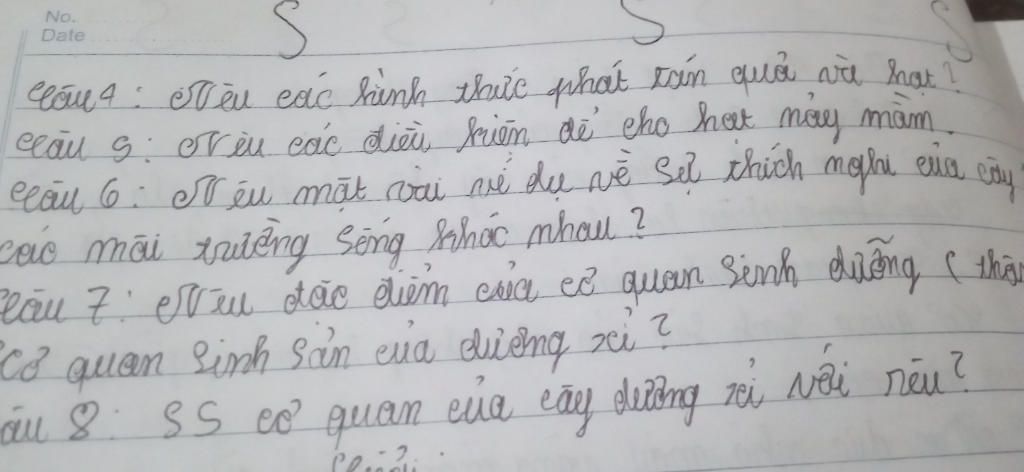 No.
Date
S S S
Câu 4: Nêu các hình thức phát tán quả và hạt?
Câu 5: Nêu các điều kiện để cho hạt nảy mầm.
Câu 6: Nêu một vài ví dụ về sự thích nghi của cây
các môi trường sống khác nhau?
Câu 7: Nêu đặc điểm của cơ quan sinh dưỡng (thân
cơ quan sinh sản của dương xỉ?
âu 8: SS cơ quan của cây dương xỉ với rêu?